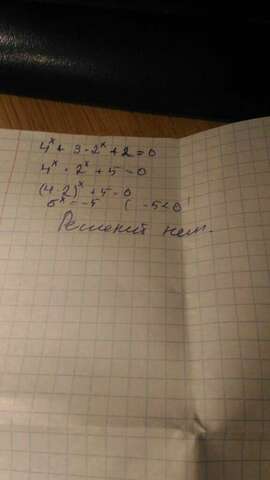 4ˣ + 3 - 2ˣ + 2 = 0
4ˣ - 2ˣ + 5 = 0
(4 2)ˣ + 5 - 0
6ˣ = -5 ( -5 < 0
Решений нет.